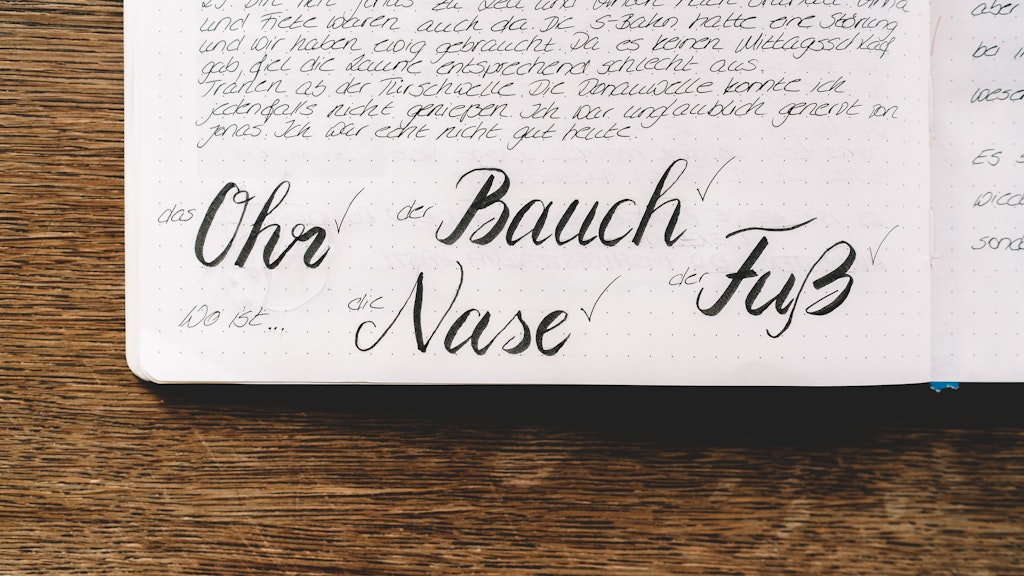 und Fiete waren auch da. Die S-Bahn hatte eine Störung
und wir haben ewig gebraucht. Da es keinen Mittagsschlaf
gab, fiel die Laune entsprechend schlecht aus.
Tränen ab der Türschwelle. Die Donauwelle konnte ich
jedenfalls nicht genießen. Ich war unglaublich genervt von
Jonas. Ich war echt nicht gut heute.
das Ohr ✓ der Bauch ✓
der Fuß ✓
Wo ist... die Nase ✓
aber
bei
Es